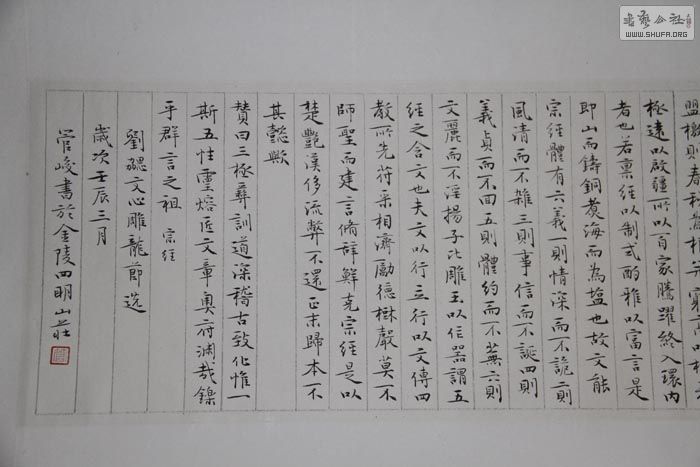 盟檄則春秋為根
極遠以啟疆所以百家騰躍終入環內
者也若稟經以制式酌雅以富言是
即山而鑄銅煮海而為塩也故文能
宗經體有六義一則情深而不詭二則
風清而不雜三則事信而不誕四則
義貞而不回五則體約而不蕪六則
文麗而不淫揚子比雕玉以作器謂五
經之含文也夫文以行立行以文傳四
教所先符采相濟勵德樹聲莫不
師聖而建言脩辭鮮克宗經是以
楚艷漢侈流弊不還正末歸本不
其懿歟
贊曰三極彝訓道深稽古致化惟一
斯五性靈熔匠文章奧府淵哉鑠
乎群言之祖 宗經
劉勰文心雕龍節選
歲次壬辰三月
管峻書於金陵四明山莊
书艺公社
WWW.SHUFA.ORG